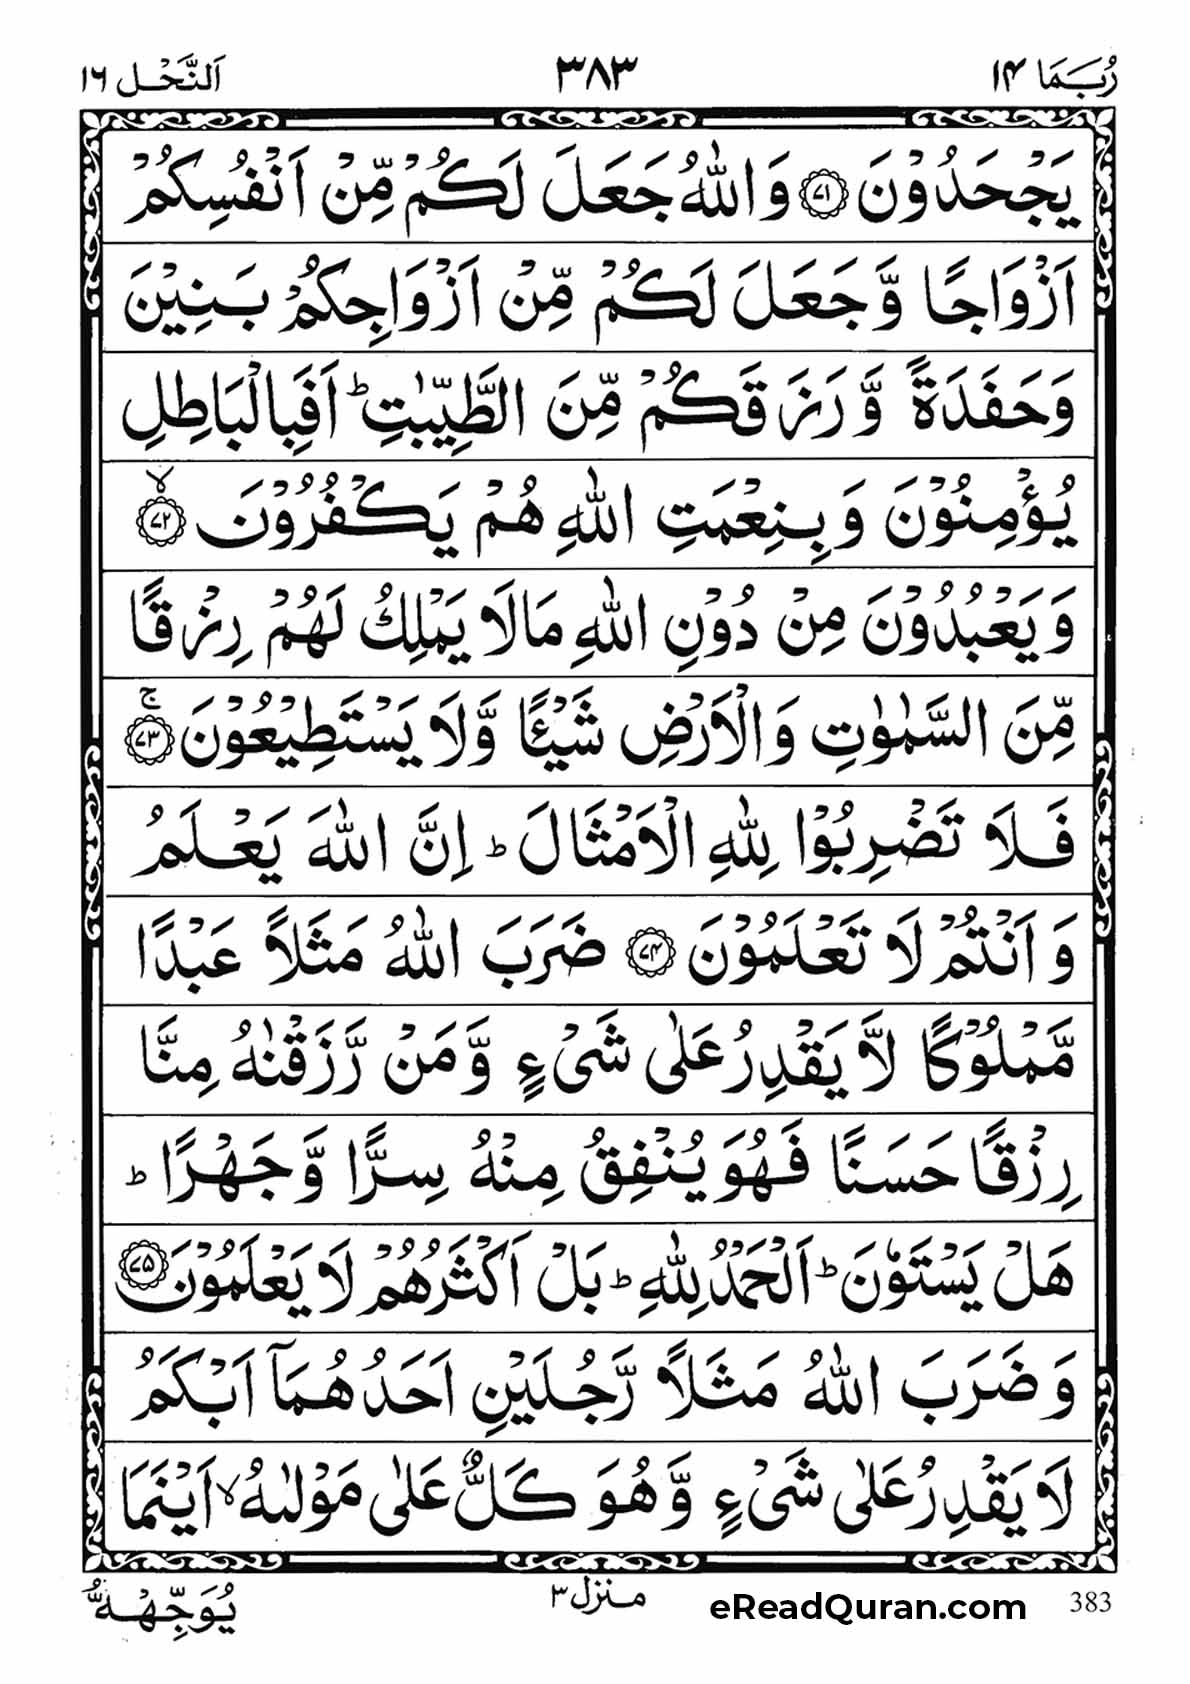 رُبَمَا ۱۴
۳۸۳
اَلنَّحْل ۱۶
يَجْحَدُوْنَ ۷۱ وَاللّٰهُ جَعَلَ لَكُمْ مِّنْ اَنْفُسِكُمْ
اَزْوَاجًا وَّجَعَلَ لَكُمْ مِّنْ اَزْوَاجِكُمْ بَنِيْنَ
وَحَفَدَةً وَّرَزَقَكُمْ مِّنَ الطَّيِّبٰتِ ؕ اَفَبِالْبَاطِلِ
يُؤْمِنُوْنَ وَبِنِعْمَتِ اللّٰهِ هُمْ يَكْفُرُوْنَ ۙ ۷۲
وَيَعْبُدُوْنَ مِنْ دُوْنِ اللّٰهِ مَالَا يَمْلِكُ لَهُمْ رِزْقًا
مِّنَ السَّمٰوٰتِ وَالْاَرْضِ شَيْئًا وَّلَا يَسْتَطِيْعُوْنَ ۚ ۷۳
فَلَا تَضْرِبُوْا لِلّٰهِ الْاَمْثَالَ ؕ اِنَّ اللّٰهَ يَعْلَمُ
وَاَنْتُمْ لَا تَعْلَمُوْنَ ۷۴ ضَرَبَ اللّٰهُ مَثَلًا عَبْدًا
مَّمْلُوْكًا لَّا يَقْدِرُ عَلٰى شَیْءٍ وَّمَنْ رَّزَقْنٰهُ مِنَّا
رِزْقًا حَسَنًا فَهُوَ يُنْفِقُ مِنْهُ سِرًّا وَّجَهْرًا ؕ
هَلْ يَسْتَوٗنَ ؕ اَلْحَمْدُ لِلّٰهِ ؕ بَلْ اَكْثَرُهُمْ لَا يَعْلَمُوْنَ ۷۵
وَضَرَبَ اللّٰهُ مَثَلًا رَّجُلَيْنِ اَحَدُهُمَاۤ اَبْكَمُ
لَا يَقْدِرُ عَلٰى شَیْءٍ وَّهُوَ كَلٌّ عَلٰى مَوْلٰىهُ ۙ اَيْنَمَا
يُوَجِّهْهُّ
منزل ۳
eReadQuran.com
383